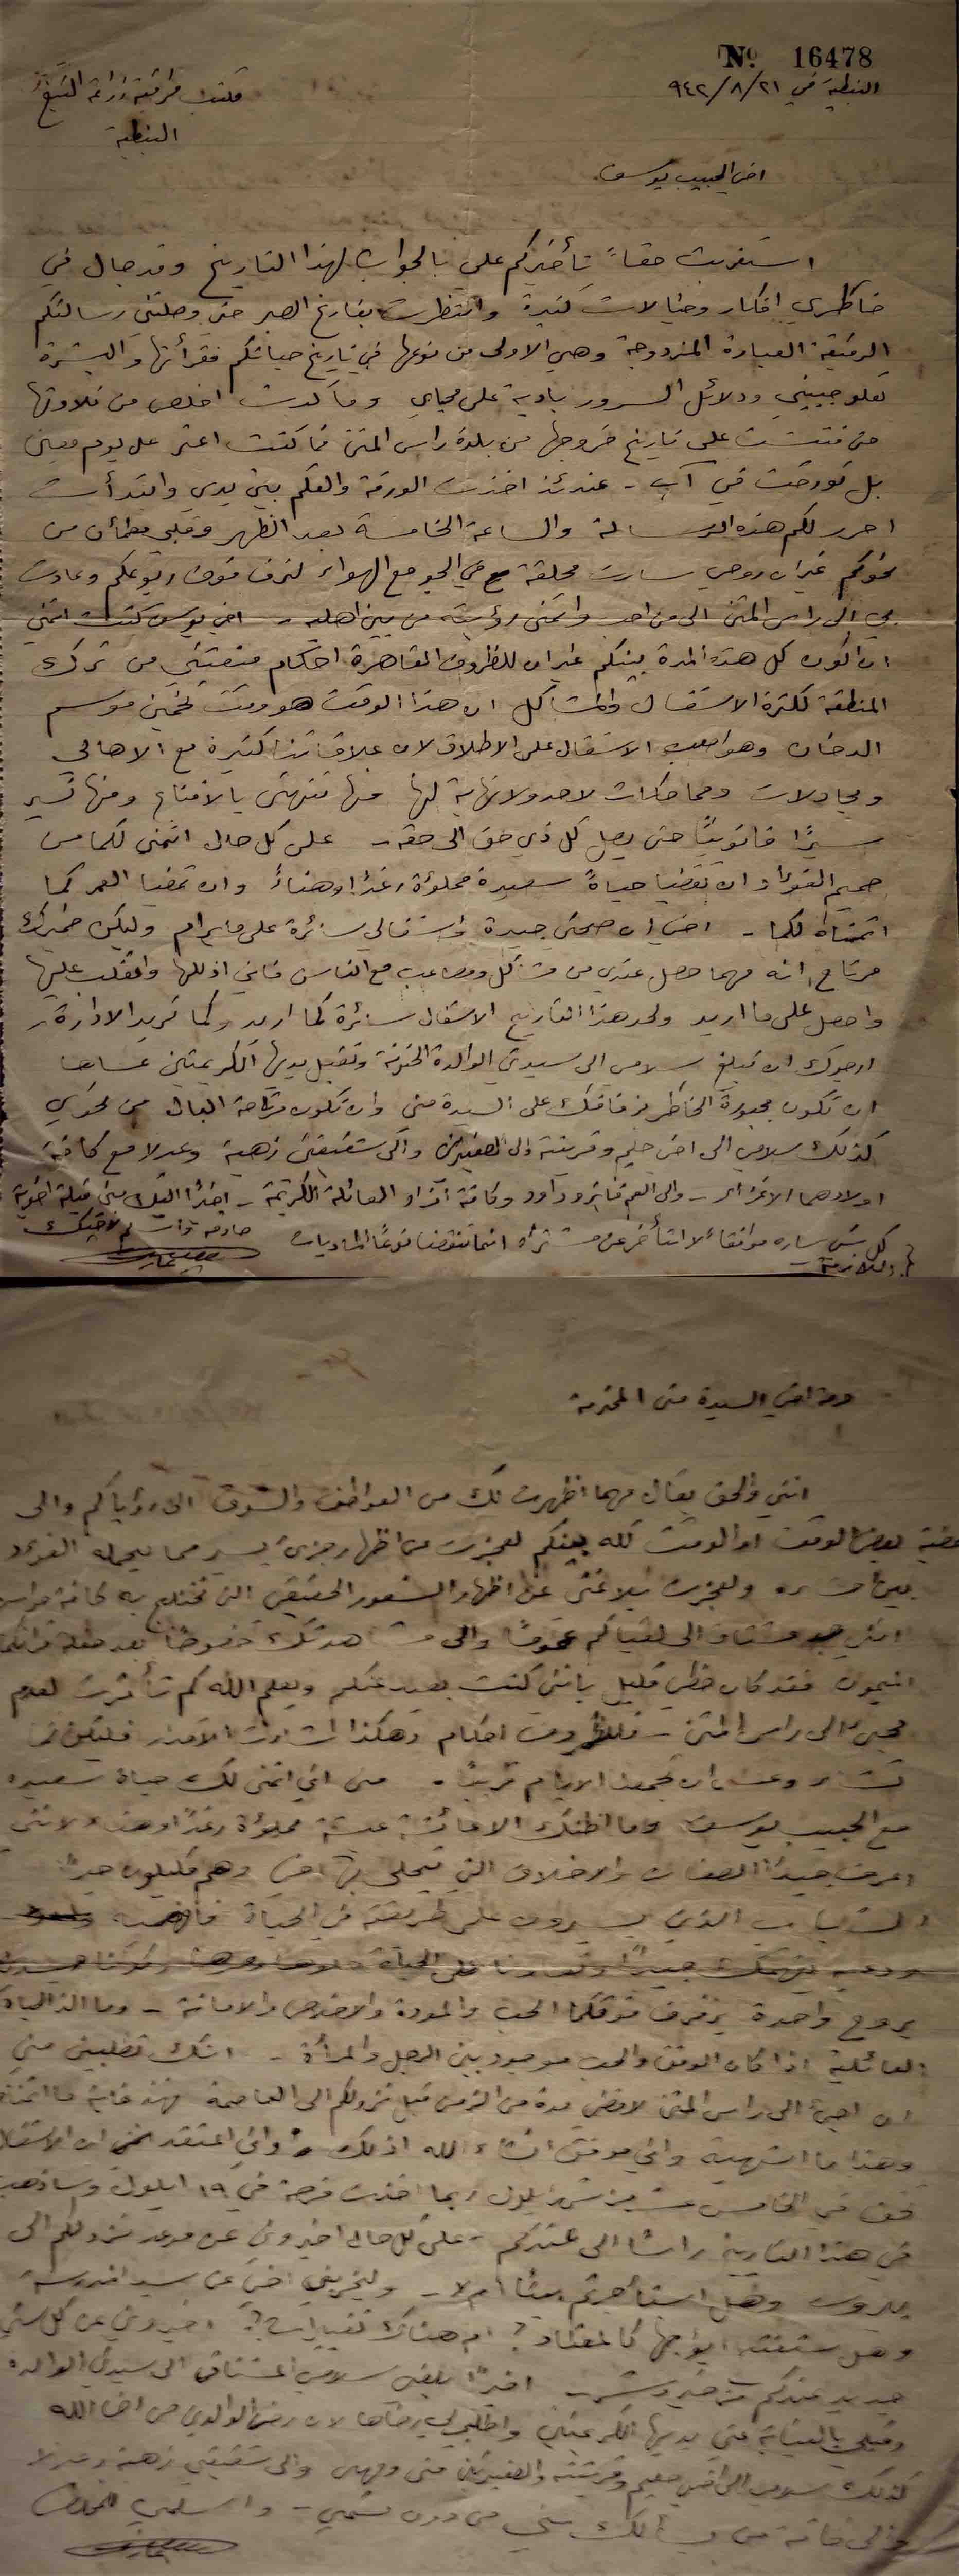 No. 16478
النبطية في ٩٤٢/٨/٢١
مكتب مراقبة زراعة التبغ
النبطية
اخي الحبيب يوسف
استغربت حقاً تأخيركم علي بالجواب لهذا التاريخ وقد جال في
خاطري افكار وخيالات كثيرة وانتظرت بفارغ الصبر حتى وصلتني رسالتكم
الرقيقة العبارة المزدوجة وهي الاولى من نوعها في تاريخ حياتكم فقرأتها والبشرة
تعلو جبيني ودلائل السرور بادية على محياي وما كدت اخلص من تلاوتها
حتى فتشت على تاريخ خروجها من بلدة راس المتن فما كنت اعثر على يوم معين
بل تورخت في آب - عندئذ اخذت الورقة والقلم بين يدي وابتدأت
احرر لكم هذه الرسالة والساعة الخامسة بعد الظهر وقلبي مطمأن من
نحوكم غير ان روحي سارت محلقة في الجو مع الهواء لترف فوق ربوعكم وعادت
بي الى راس المتن الى من احب واتمنى رؤيته من بين اهليه - اخي يوسف كنت اتمنى
ان اكون كل هذه المدة بينكم غير ان للظروف القاهرة احكام منعتني من ترك
المنطقة لكثرة الاشغال والمشاكل ان هذا الوقت هو وقت تخمين موسم
الدخان وهو اصعب الاشغال على الاطلاق لان علاقاتنا كثيرة مع الاهالي
ومجادلات ومحاكمات لا حد ولا نهاية لها منها تنتهي بالاقناع ومنها تسير
سيرًا قانونيًا حتى يصل كل ذي حق الى حقه - على كل حال اتمنى لكما من
صميم الفؤاد ان تقضيا حياةً سعيدة مملؤة رغدًا وهناءً وان تمضيا العمر كما
اتمناه لكما - اخي ان صحتي جيدة واشغالي سائرة على ما يرام وليكن ضميرك
مرتاح انه مهما حصل عندي من مشاكل ومصاعب مع الناس فاني اذللها واتغلب عليها
واحصل على ما اريد ولحد هذا التاريخ الاشغال سائرة كما اريد وكما تريد الادارة -
ارجوك ان تبلغ سلامي الى سيدتي الوالدة الحنونة وتقبل يديها الكريمتين عساها
ان تكون مجبورة الخاطر بزفافك على السيدة منى وان تكون مرتاحة البال من نحوي
كذلك سلامي الى اخي حليم وقرينته والى الصغيرتين والى شقيقتي زهية وعدلا مع كافة
اولادهما الاعزاء - والى العم فايز وداود وكافة افراد العائلة الكريمة - اخيرًا اليك مني قبلة اخوية
كل شي ساره موافقا لا نتأخر عن مشتراه انما تنقصنا نوعًا الماديات
واللازمة -
حضرة اختي السيدة منى المحترمة
انني والحق يقال مهما اظهرت لك من العواطف والشوق الى رؤياكم والى
بعض الوقت او الوقت كله بينكم لعجزت عن اظهار جزء يسير مما يحمله الفؤاد
ولعجزت بلاغتي عن اظهار الشعور الحقيقي التي تختلج به كافة
انني جد مشتاق الى لقياكم عمومًا والى مشاهدتك خصوصًا بعد حفلة قرانكما
الميمون فقد كان حظي قليل بانني كنت بعيد عنكم ويعلم الله كم تأثرت لعدم
مجيئي الى راس المتن - فللظروف احكام وهكذا شاءت الاقدار فليكن كما
تشاء وعسى ان تجمعنا الايام قريبًا - منى اني اتمنى لك حياة سعيدة
مع الحبيب يوسف وما اظنك الا عائشة عيشة مملؤة رغدًا وهناء لانني
اعرف جيدًا الصفات والاخلاق التي يتحلى بها اخي وهم قليلون جدًا
الشباب الذي يسيرون على طريقته في الحياة فافهميه
بروح واحدة يرفرف فوقكما الحب والمودة والاخلاص والامانة - وما الذ الحياة
العائلية اذا كان الوفق والحب موجود بين الرجل والمرأة - انك تطلبين مني
ان اجيء الى راس المتن لاقضي مدة من الزمن قبل نزولكم الى العاصمة فهذه غاية ما اتمناه
وهذا ما اشتهيه واني موفق انشاء الله اذلك واني اعتقد ان الاشغال
تخف في الخامس عشر من شهر ايلول ربما اخذت فرصة في ١٩ ايلول وساذهب
في هذا التاريخ راسًا الى عندكم - على كل حال اخبروني عن موعد نزولكم الى
بيروت وهل استأجرتم بيتًا ام لا - وليخبرني اخي عن سير المدرسة
وهل شغلته بواجها كالمعتاد؟ ام هناك تغييرات؟ اخبروني عن كل شي
جديد عندكم من خير وشر - اخيرًا بلغي سلامي المشتاق الى سيدتي الوالدة
وقبلي بالنيابة عني يديها الكريمتين واطلبي لي رضاها لان رضى الوالدين من رضا الله
كذلك سلامي الى اخي حليم وقرينته والصغيرتين منى ونهى والى شقيقتي زهية وعدلا
والى كافة من يسألك عني من دون تسمي - واسلمي